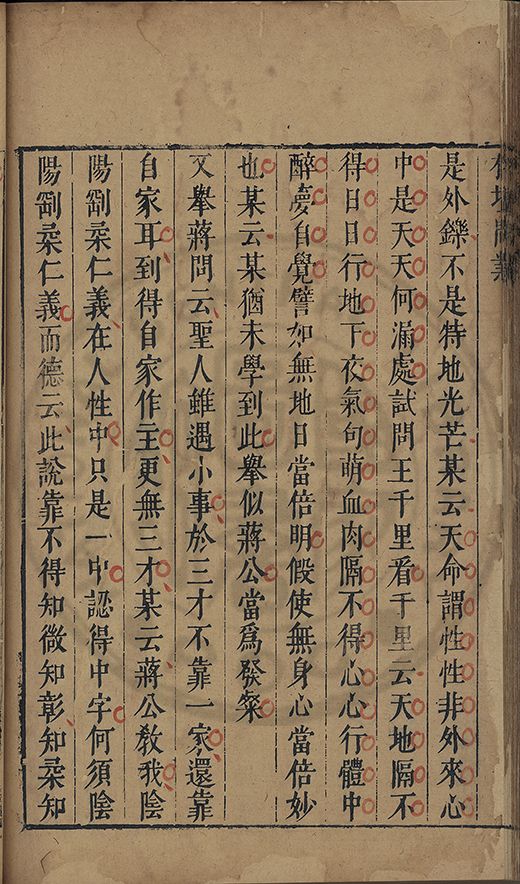 是外鑠不是特地光芒某云天命謂性性非外來心
中是天天何漏處試問王千里看千里云天地隔不
得日日行地下夜氣句萌血肉隔不得心心行體中
醉夢自覺譬如無地日當倍明假使無身心當倍妙
也某云某猶未學到此舉似蔣公當爲發粲
又舉蔣問云聖人雖遇小事於三才不靠一家還靠
自家耳到得自家作主更無三才某云蔣公教我陰
陽劉柔仁義在人性中只是一中認得中字何須陰
陽劉柔仁義而德云此說靠不得知微知彰知柔知